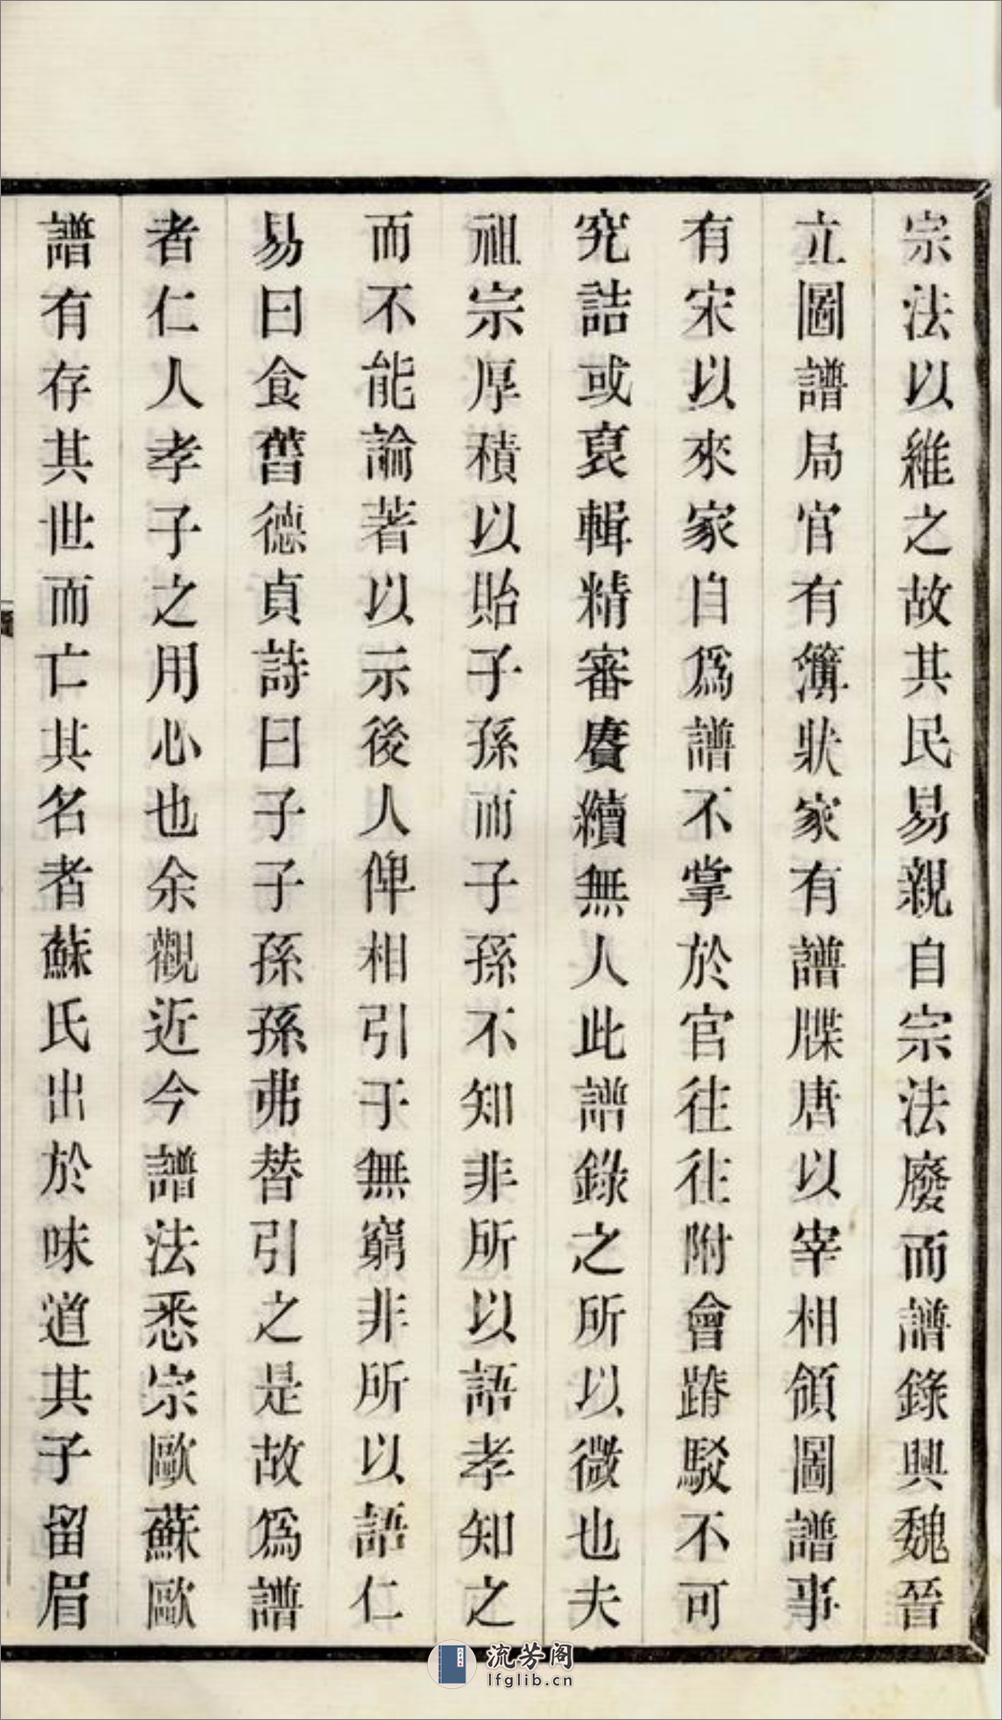 宗法以維之故其民易親自宗法廢而譜錄興魏晉
立圖譜局官有簿狀家有譜牒唐以宰相領圖譜事
有宋以來家自爲譜不掌於官往往附會踳駁不可
究詰或裒輯精審賡續無人此譜錄之所以微也夫
祖宗厚積以貽子孫而子孫不知非所以語孝知之
而不能論著以示後人俾相引于無窮非所以語仁
易曰食舊德貞詩曰子子孫孫弗替引之是故爲譜
者仁人孝子之用心也余觀近今譜法悉宗歐蘇歐
譜有存其世而亡其名者蘇氏出於味道其子留眉
流芳阁
lfglib.cn